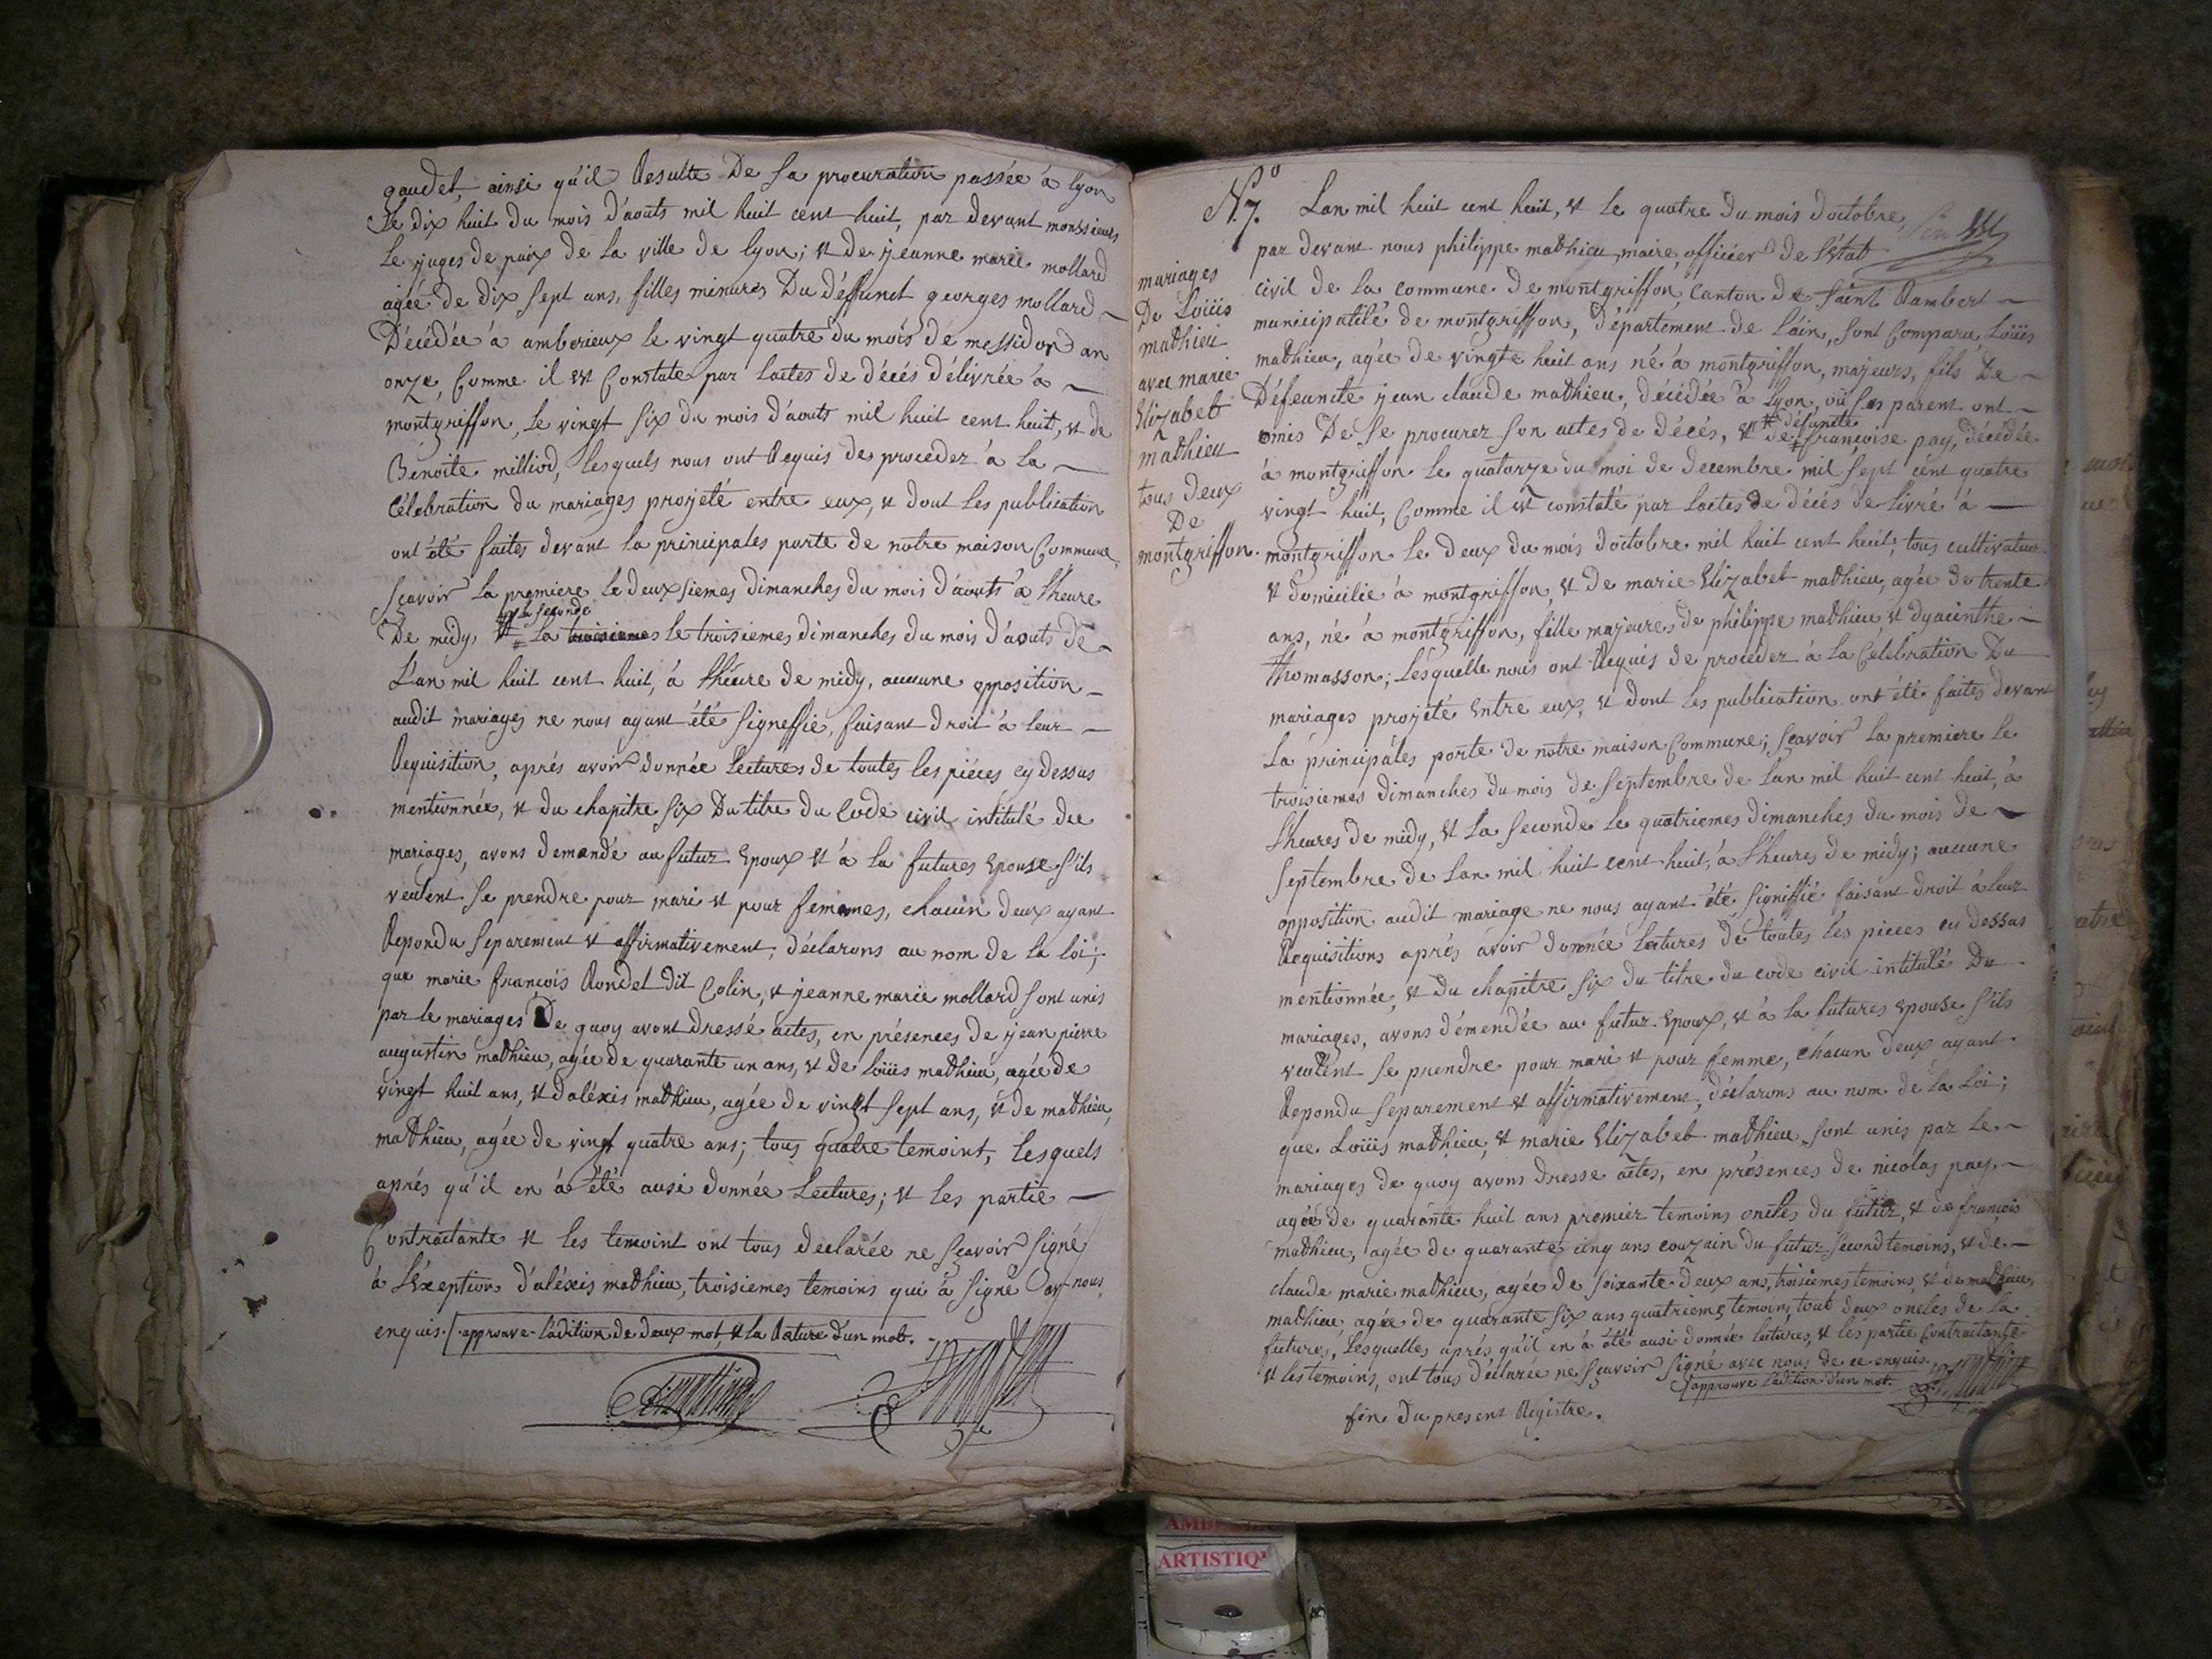 gaudet, ainsi qu'il Resulte De sa procuration passée à lyon
Le dix huit du mois d'aouts mil huit cent huit, par devant monssieurs
Le juges de paix de la ville de lyon; et de jeanne marie mollard
agée de dix sept ans, filles minures Du déffunct georges mollard
Décédée à amberieux le vingt quatre du mois de messidor an
onze, Comme il est Constate par lactes de décés délivrée à
montgriffon, le vingt six du mois d'aouts mil huit cent huit, et de
Benoite milliod, lesquels nous ont Requis de proceder à la
Célebration du mariages projeté entre eux, et dont les publication
ont été faites devant la principales porte de notre maison Commune,
sçavoir la premiere le deuxsiemes dimanches du mois d'aouts à l'heure
la seconde
De midy, et la troisiemes le troisiemes dimanches du mois d'aouts de
L'an mil huit cent huit, à l'heure de midy, aucune opposition
audit mariages ne nous ayant été signeffié, faisant droit à leur
Requisition, aprés avoir donnée Lectures de toutes les piéces cy dessus
mentionnée, et du chapitre six Du titre du Code civil intitulé du
mariages, avons demande au futur Epoux et à la futures Epouse s'ils
veulent se prendre pour mari et pour femmes, chacun deux ayant
Repondu separement et affirmativement, déclarons au nom de la loi;
que marie françois Rondet dit Colin, et jeanne marie mollard sont unis
par le mariages De quoy avont dressé actes, en présences de jean pierre
augustin mathieu, agée de quarante un ans, et de Loüis mathieu, agée de
vingt huit ans, et d'aléxis mathieu, agée de vingt sept ans, et de mathieu,
mathieu, agée de vingt quatre ans; tous quatre temoint, Lesquels
aprés qu'il en à été ausi donnée Lectures; et les partie
Contractante et les temoint ont tous declarée ne sçavoir signé
à l'éxeption d'aléxis mathieu, troisiemes temoins qui à signé av nous
enquis. approuve l'adition de deux mot, et la Rature d'un mot.
N.° 7.
mariages
De Loüis
mathieu
avec marie
Elizabet
mathieu
tous deux
De
montgriffon.
Lan mil huit cent huit, et le quatre du mois doctobre,
par devant nous philippe mathieu, maire, officier de l'état
civil de la commune de montgriffon, Canton de saint Rambert
municipatilé de montgriffon, Département de l'ain, sont Comparu, Loüis
mathieu, agée de vingte huit ans né à montgriffon, majeurs, fils De
Défeuncte jean claude mathieu, décédée à Lyon, oü ses parent ont
et défuncte
omis De se procurez son actes de décés, et de françoise pay, décédée
à montgriffon le quatorze du moi de decembre mil sept cent quatre
vingt huit, Comme il est constaté par lactes de décés de livré à
montgriffon le deux du mois doctobre mil huit cent huit, tous cultivateur
et domicilie à montgriffon, et de marie Elizabet mathieu, agée de trente
ans, né à montgriffon, fille majeures de philippe mathieu et dyacinthe
thomasson; lesquelle nous ont Requis de procédez à la Celebration Du
mariages projété Entre eux, et dont les publication ont été faites devant
La principáles porte de notre maison Commune; sçavoir la premiere le
troisiemes dimanches du mois de septembre de lan mil huit cent huit, à
l'heures de midy, et la seconde le quatriemes dimanches du mois de
septembre de lan mil huit cent huit, à l'heures de midy; aucune
opposition audit mariage ne nous ayant été signiffié faisant droit à leur
Requisitions aprés avoir donnée Lectures de toutes les pieces cy dessus
mentionnée, et du chapitre six du titre du code civil intitulé Du
mariages, avons démendée au futur Epoux, et à la futures epouse s'ils
veulent se prendre pour mari et pour femme, chacun deux ayant
Repondu separement et affirmativement, déclarons au nom de la Loi;
que Loüis mathieu, et marie Elizabet mathieu sont unis par le
mariages de quoy avons dresse actes, en présences de nicolas pay
agée de quarante huit ans premier temoins oncles du futur, et de françois
mathieu, agée de quarante cinq ans couzain du futur second temoins, et de
claude marie mathieu, agée de soixante deux ans, troisiemes temoins, et de mathieu
mathieu agée de quarante six ans quatriemes temoins, tout deux oncles de la
futures, Lesquelles aprés qu'il en à été ausi donnée lectures, et les partie contractante
et les temoins, ont tous déclarée ne sçavoir signé avec nous de ce enquis.
approuve l'adition d'un mot.
fin Du present Registre.
AMB
ARTISTIQ